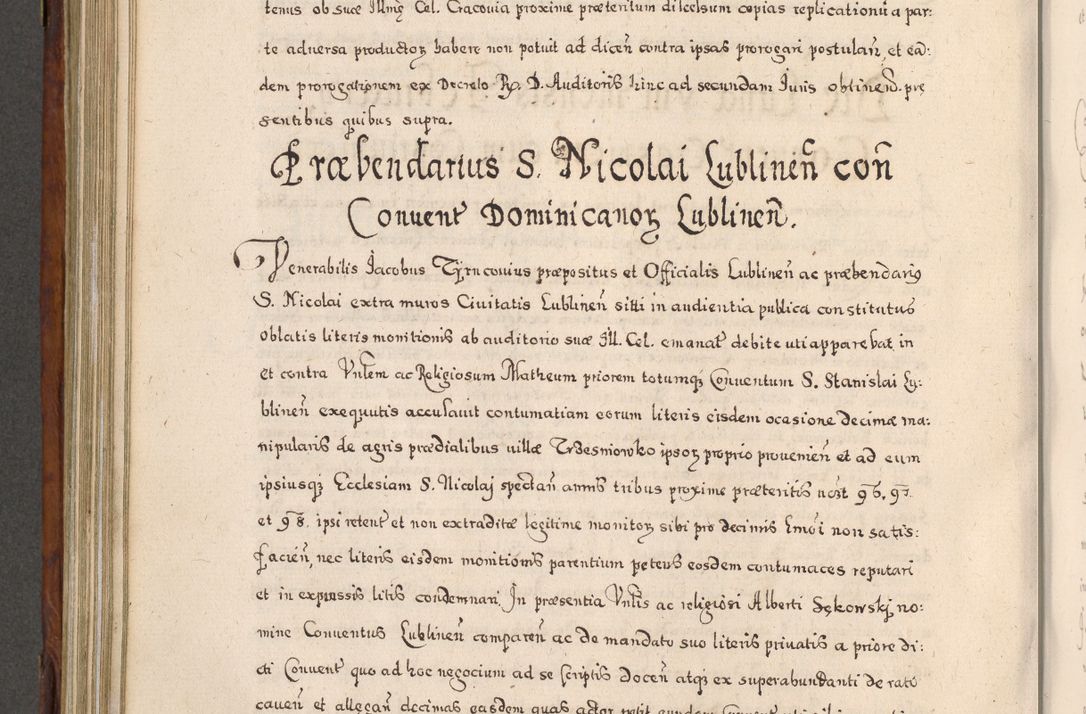 tenus ob suæ Illmę Cel. Cracovia proxime præteritum discelsum copias replicationū a par:
te adversa productoꝝ habere non potuit ad diceñ contra ipsas prorogari postulavit, et eā:
dem prorogationem ex Decreto Rṇ. D. Auditoris hinc ad secundam Juris obtineñ. prę
sentibus quibus supra.
Præbendarius S. Nicolai Lublineñ coñ
Conuent Dominicanoꝝ Lublineñ.
Venerabilis Jacobus Tyrncouius præpositus et Officialis Lublineñ ac præbendariꝰ
S. Nicolai extra muros Ciuitatis Lublineñ siti in audientia publica constitutus
oblatis literis monitionis ab auditorio suæ Ill. Cel. emanat debite uti apparebat in
et contra Vnlem ac Religiosum Matheum priorem totumqꝫ Conuentum S. Stanislai Lu:
blineñ exequutis accusauit contumatiam eorum literis eisdem ocasione decimæ ma:
nipularis de agris prædialibus uillæ Trzesniowko ipsoꝝ proprio prouenieñ et ad eum
ipsiusqꝫ Ecclesiam S. Nicolaj spectañ annis tribus proxime præteritis uczt 96, 97.
et 98. ipsi retent et non extraditæ legitime monitoꝝ sibi pro decimis Emōi non satis:
facieñ, nec literis eisdem monitionis parentium petens eosdem contumaces reputari
et in expensis litis condemnari, In præsentia Vnlis ac religiosi Alberti Sękowskj no:
mine Conuentus Lublineñ compareñ ac de mandato suo literis priuatis a priore di:
cti Conuent quo ad hoc negocium ad se scriptis doceñ atqꝫ ex superabundanti de rato
caueñ et allegañ decimas easdem quas actor petit eundem Conuentum